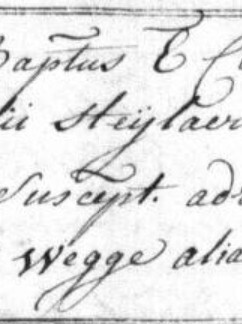 Baptus E C
ii steÿlaer
Suscept. adr
Wegge alia